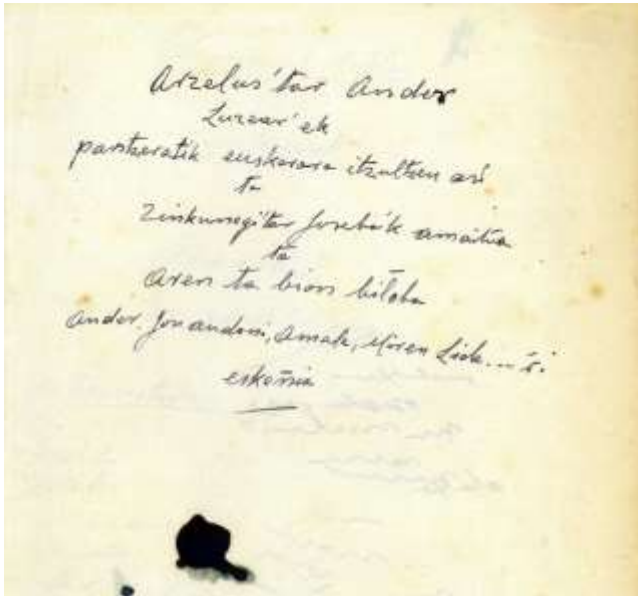 Arzelus'tar Andor
Luzear'ek
pantzeratik euskerara itzultzen asi
ta
Zinkunegi'tar Josebak amaitua
ta
aren ta bion biloba
Ander, Jon andoni, Amale, Miren Lide...'ri
eskeñia